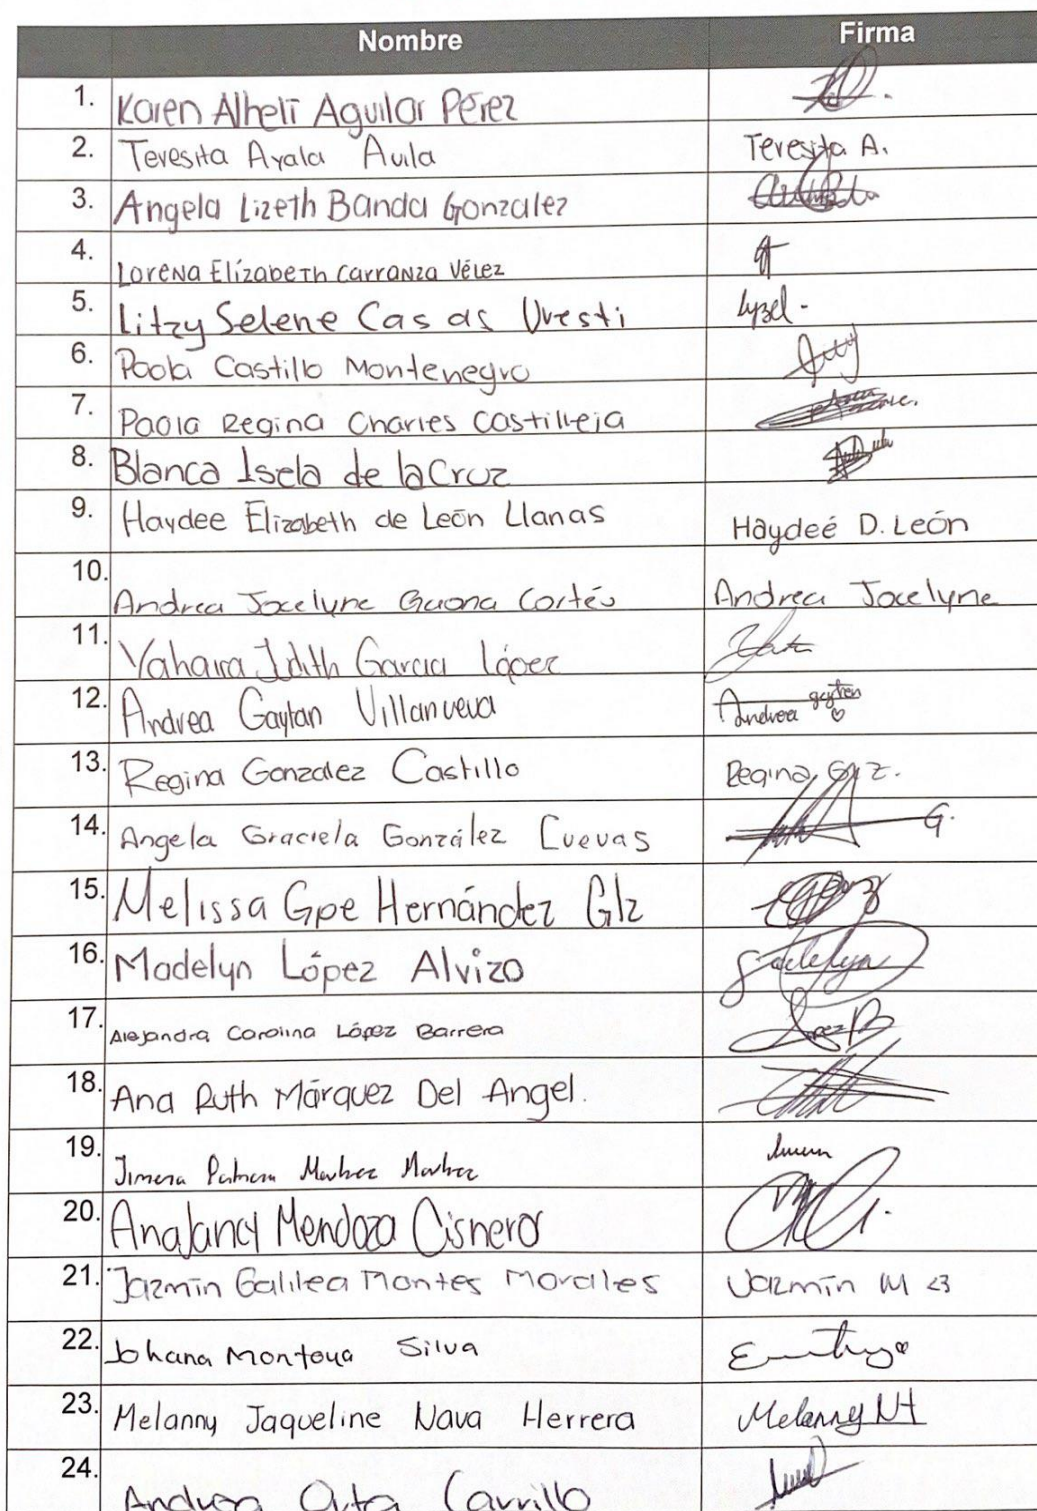 Nombre Firma
1. Karen Alhelí Aguilar Pérez
2. Teresita Ayala Avila Teresita A.
3. Angela Lizeth Banda Gonzalez
4. Lorena Elízabeth Carranza Vélez
5. Litzy Selene Casas Uresti Lyzel-
6. Paola Castillo Montenegro
7. Paola Regina Charles Castilleja
8. Blanca Isela de la Cruz
9. Haydee Elizabeth de León Llanas Haydeé D. León
10. Andrea Jocelyne Gaona Cortés Andrea Jocelyne
11. Yahaira Judith Garcia López
12. Andrea Gaytan Villanueva Andrea gaytan
13. Regina Gonzalez Castillo Regina Glz.
14. Angela Graciela González Cuevas G.
15. Melissa Gpe Hernández Glz
16. Madelyn López Alvizo Madelyn
17. Alejandra Carolina López Barrera López B
18. Ana Ruth Márquez Del Angel.
19. Jimena
20. AnaJancy Mendoza Cisneros
21. Jazmín Galilea Montes Morales Jazmín M <3
22. Johana Montoya Silva
23. Melanny Jaqueline Nava Herrera Melanny NH
24. Andrea Orta Carrillo